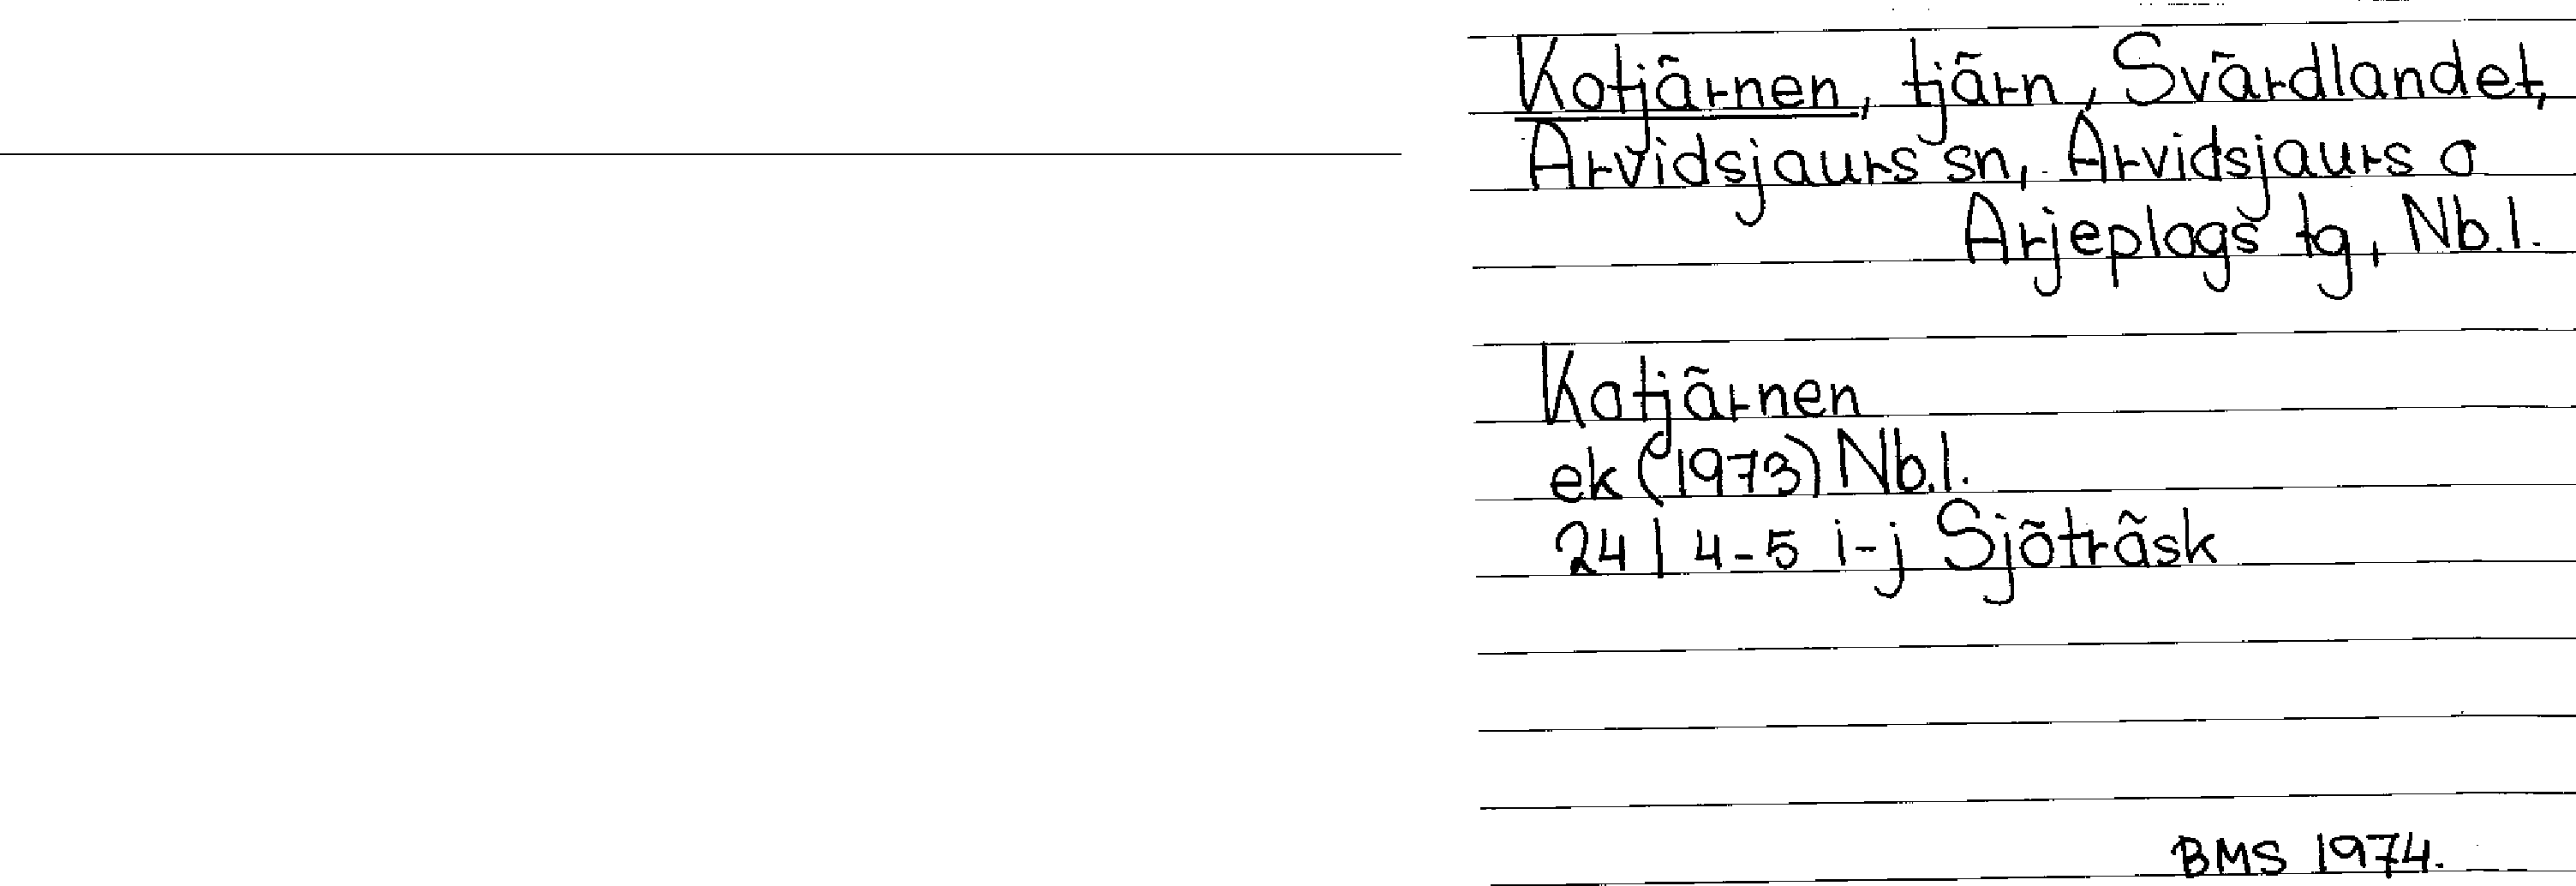 Kotjärnen, tjärn, Svärdlandet,
Arvidsjaurs sn, Arvidsjaurs o
Arjeplogs tg, Nb.l.
Kotjärnen
ek (1973) Nb.l.
24 I 4-5 i-j Sjöträsk
BMS 1974.